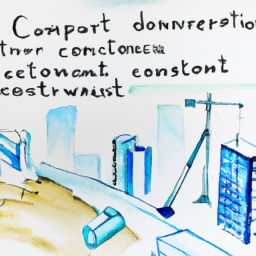 Comport donnrerstio
tnrr comctonee
cetonant. constont
costrwaist